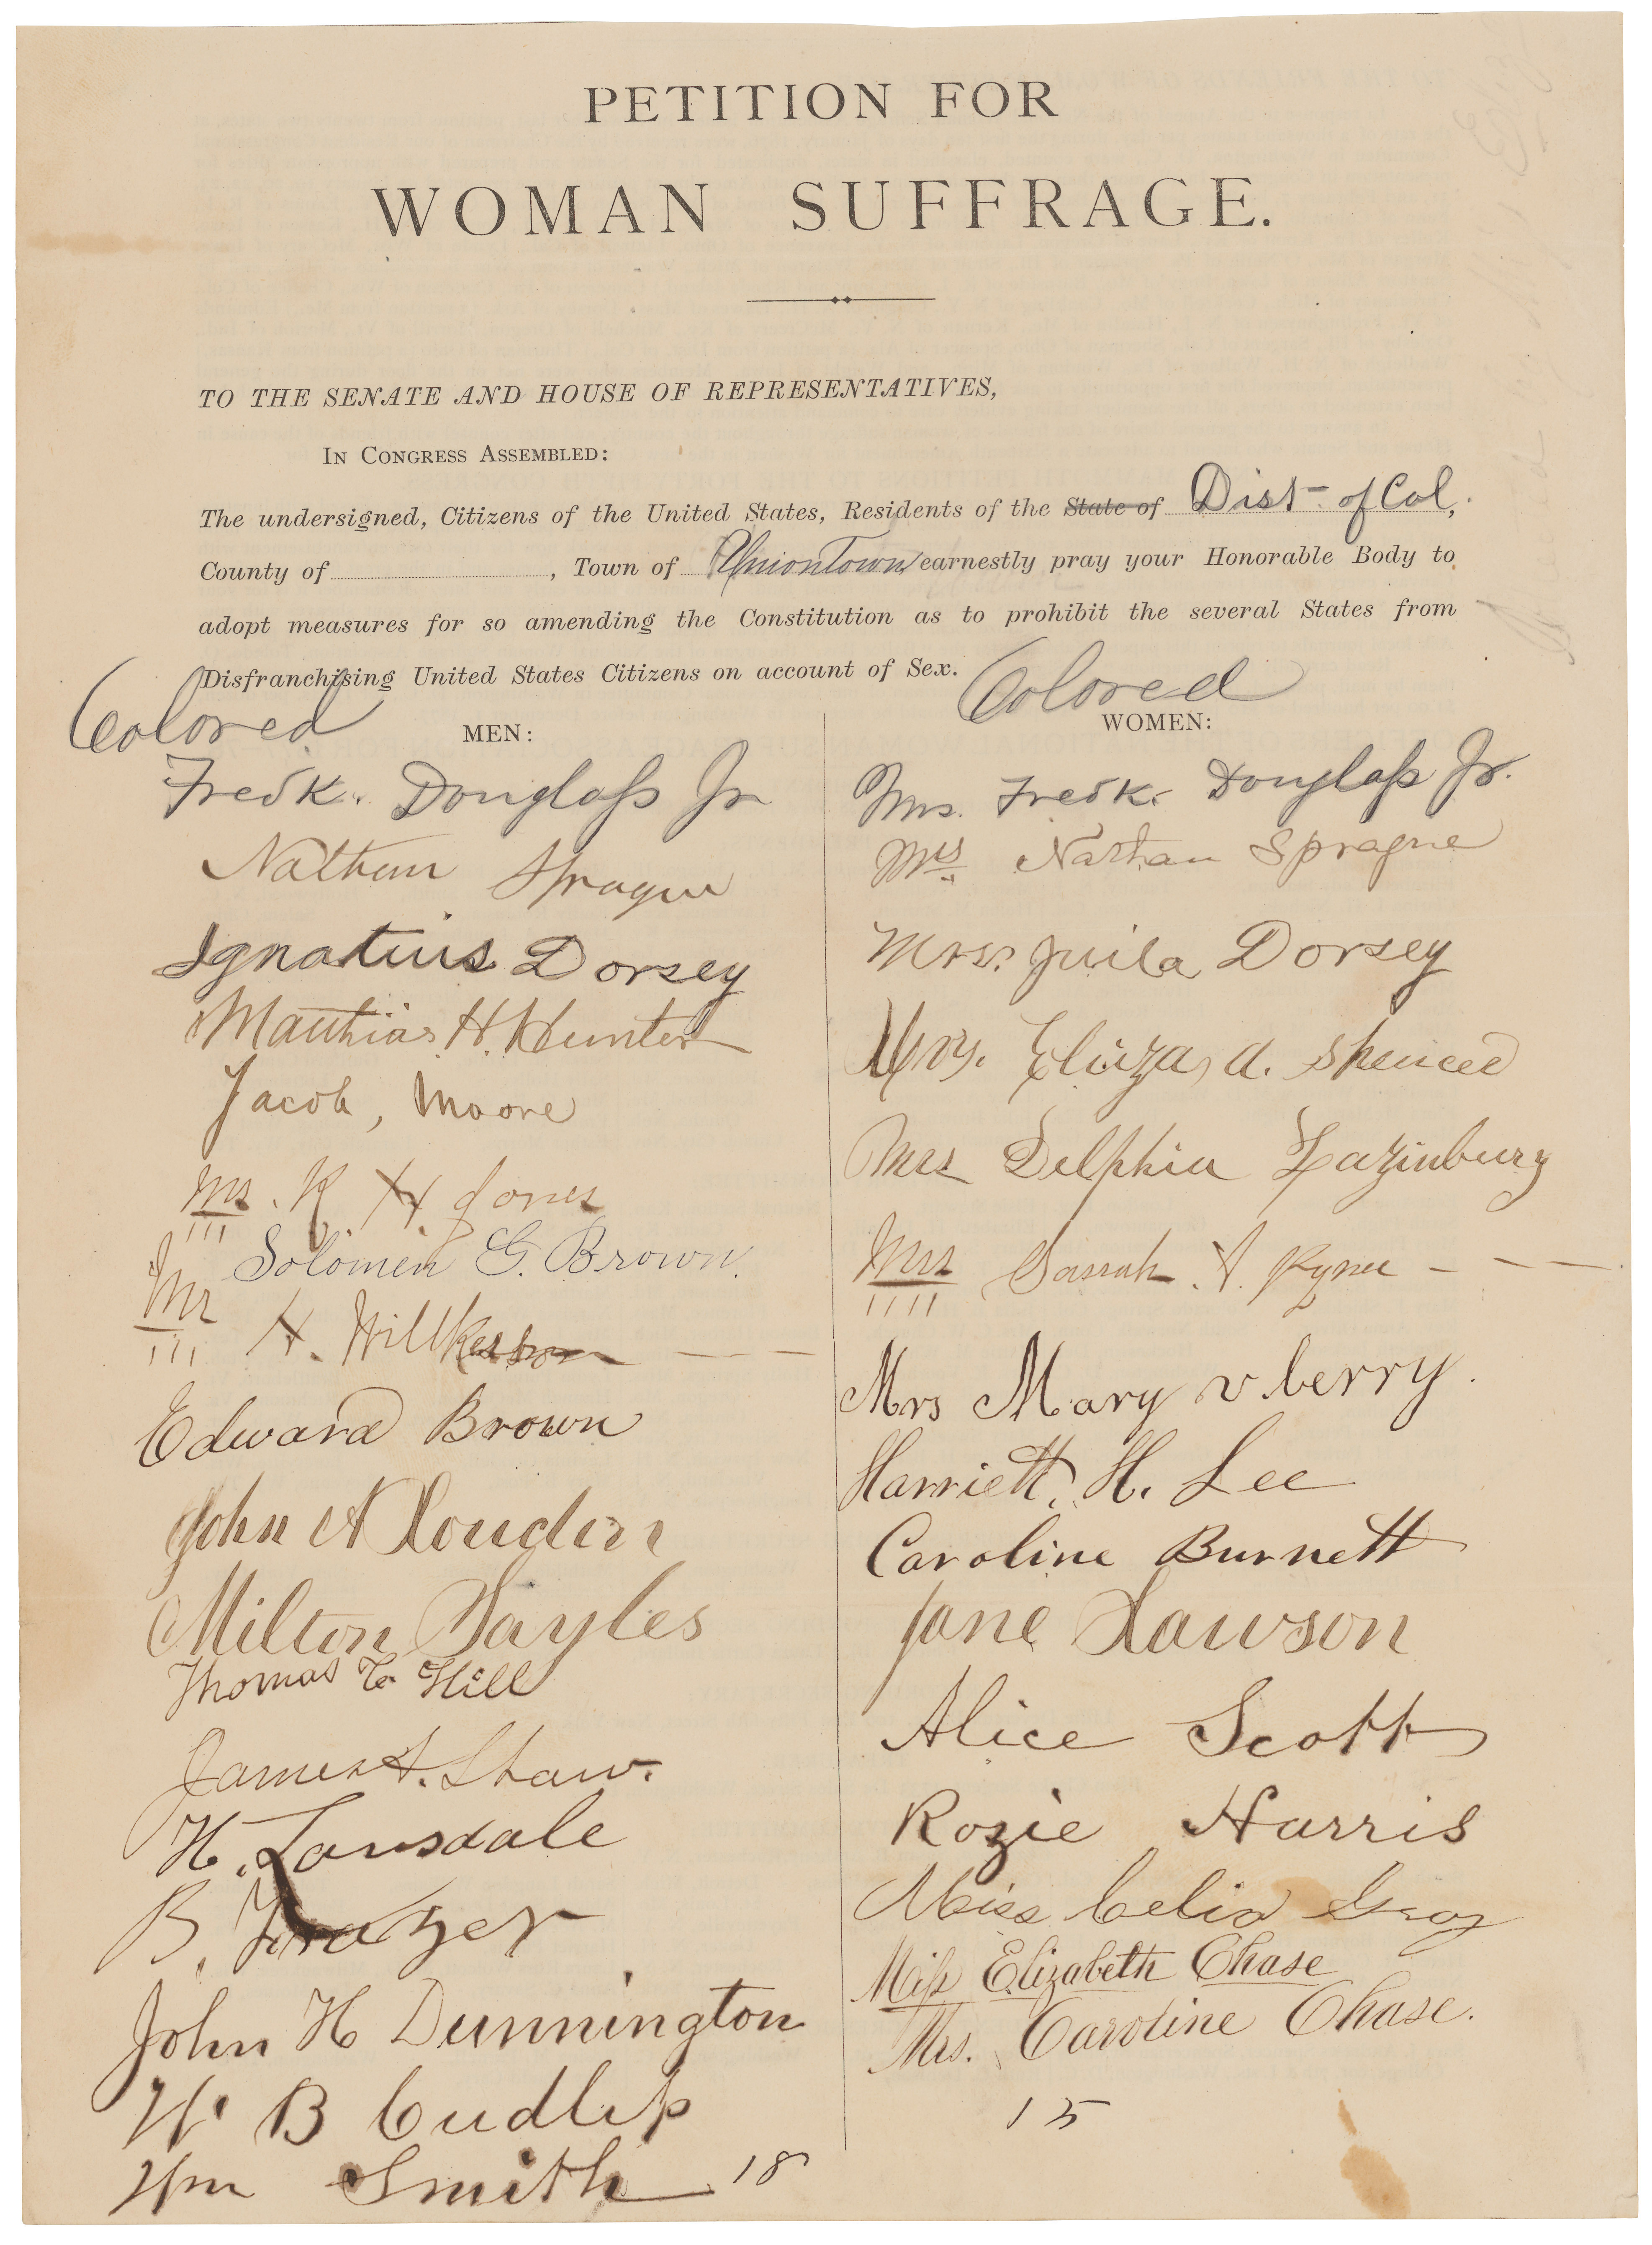 PETITION FOR
WOMAN SUFFRAGE.
TO THE SENATE AND HOUSE OF REPRESENTATIVES,
IN CONGRESS ASSEMBLED:
The undersigned, Citizens of the United States, Residents of the State of Dist- of Col,
County of , Town of Uniontown earnestly pray your Honorable Body to
adopt measures for so amending the Constitution as to prohibit the several States from
Disfranchising United States Citizens on account of Sex.
Colored
MEN:
Fredk. Douglass Jr
Nathan Sprague
Ignatius Dorsey
Matthias H. Hunter
Jacob, Moore
K. H. Jones
Solomen G. Brown.
Mr H. Willkerson
Edward Brown
John A
Milton Sayles
Thomas C. Hill
James A. Shaw.
H. Lansdale
B. Frazer
John H Dunnington
W. B Cudlip
Wm Smith 18
Colored
WOMEN:
Mrs. Fredk. Douglass Jr.
Mrs Nathan Sprague
Mrs. Juila Dorsey
Mrs. Eliza, A. Spencer
Mrs Delphia
Mrs
Mrs Mary v berry.
Harriett. H. Lee
Caroline Burnett
Jane Lawson
Alice Scott
Rozie Harris
Miss Celia Gray
Miss Elizabeth Chase
Mrs. Caroline Chase.
15